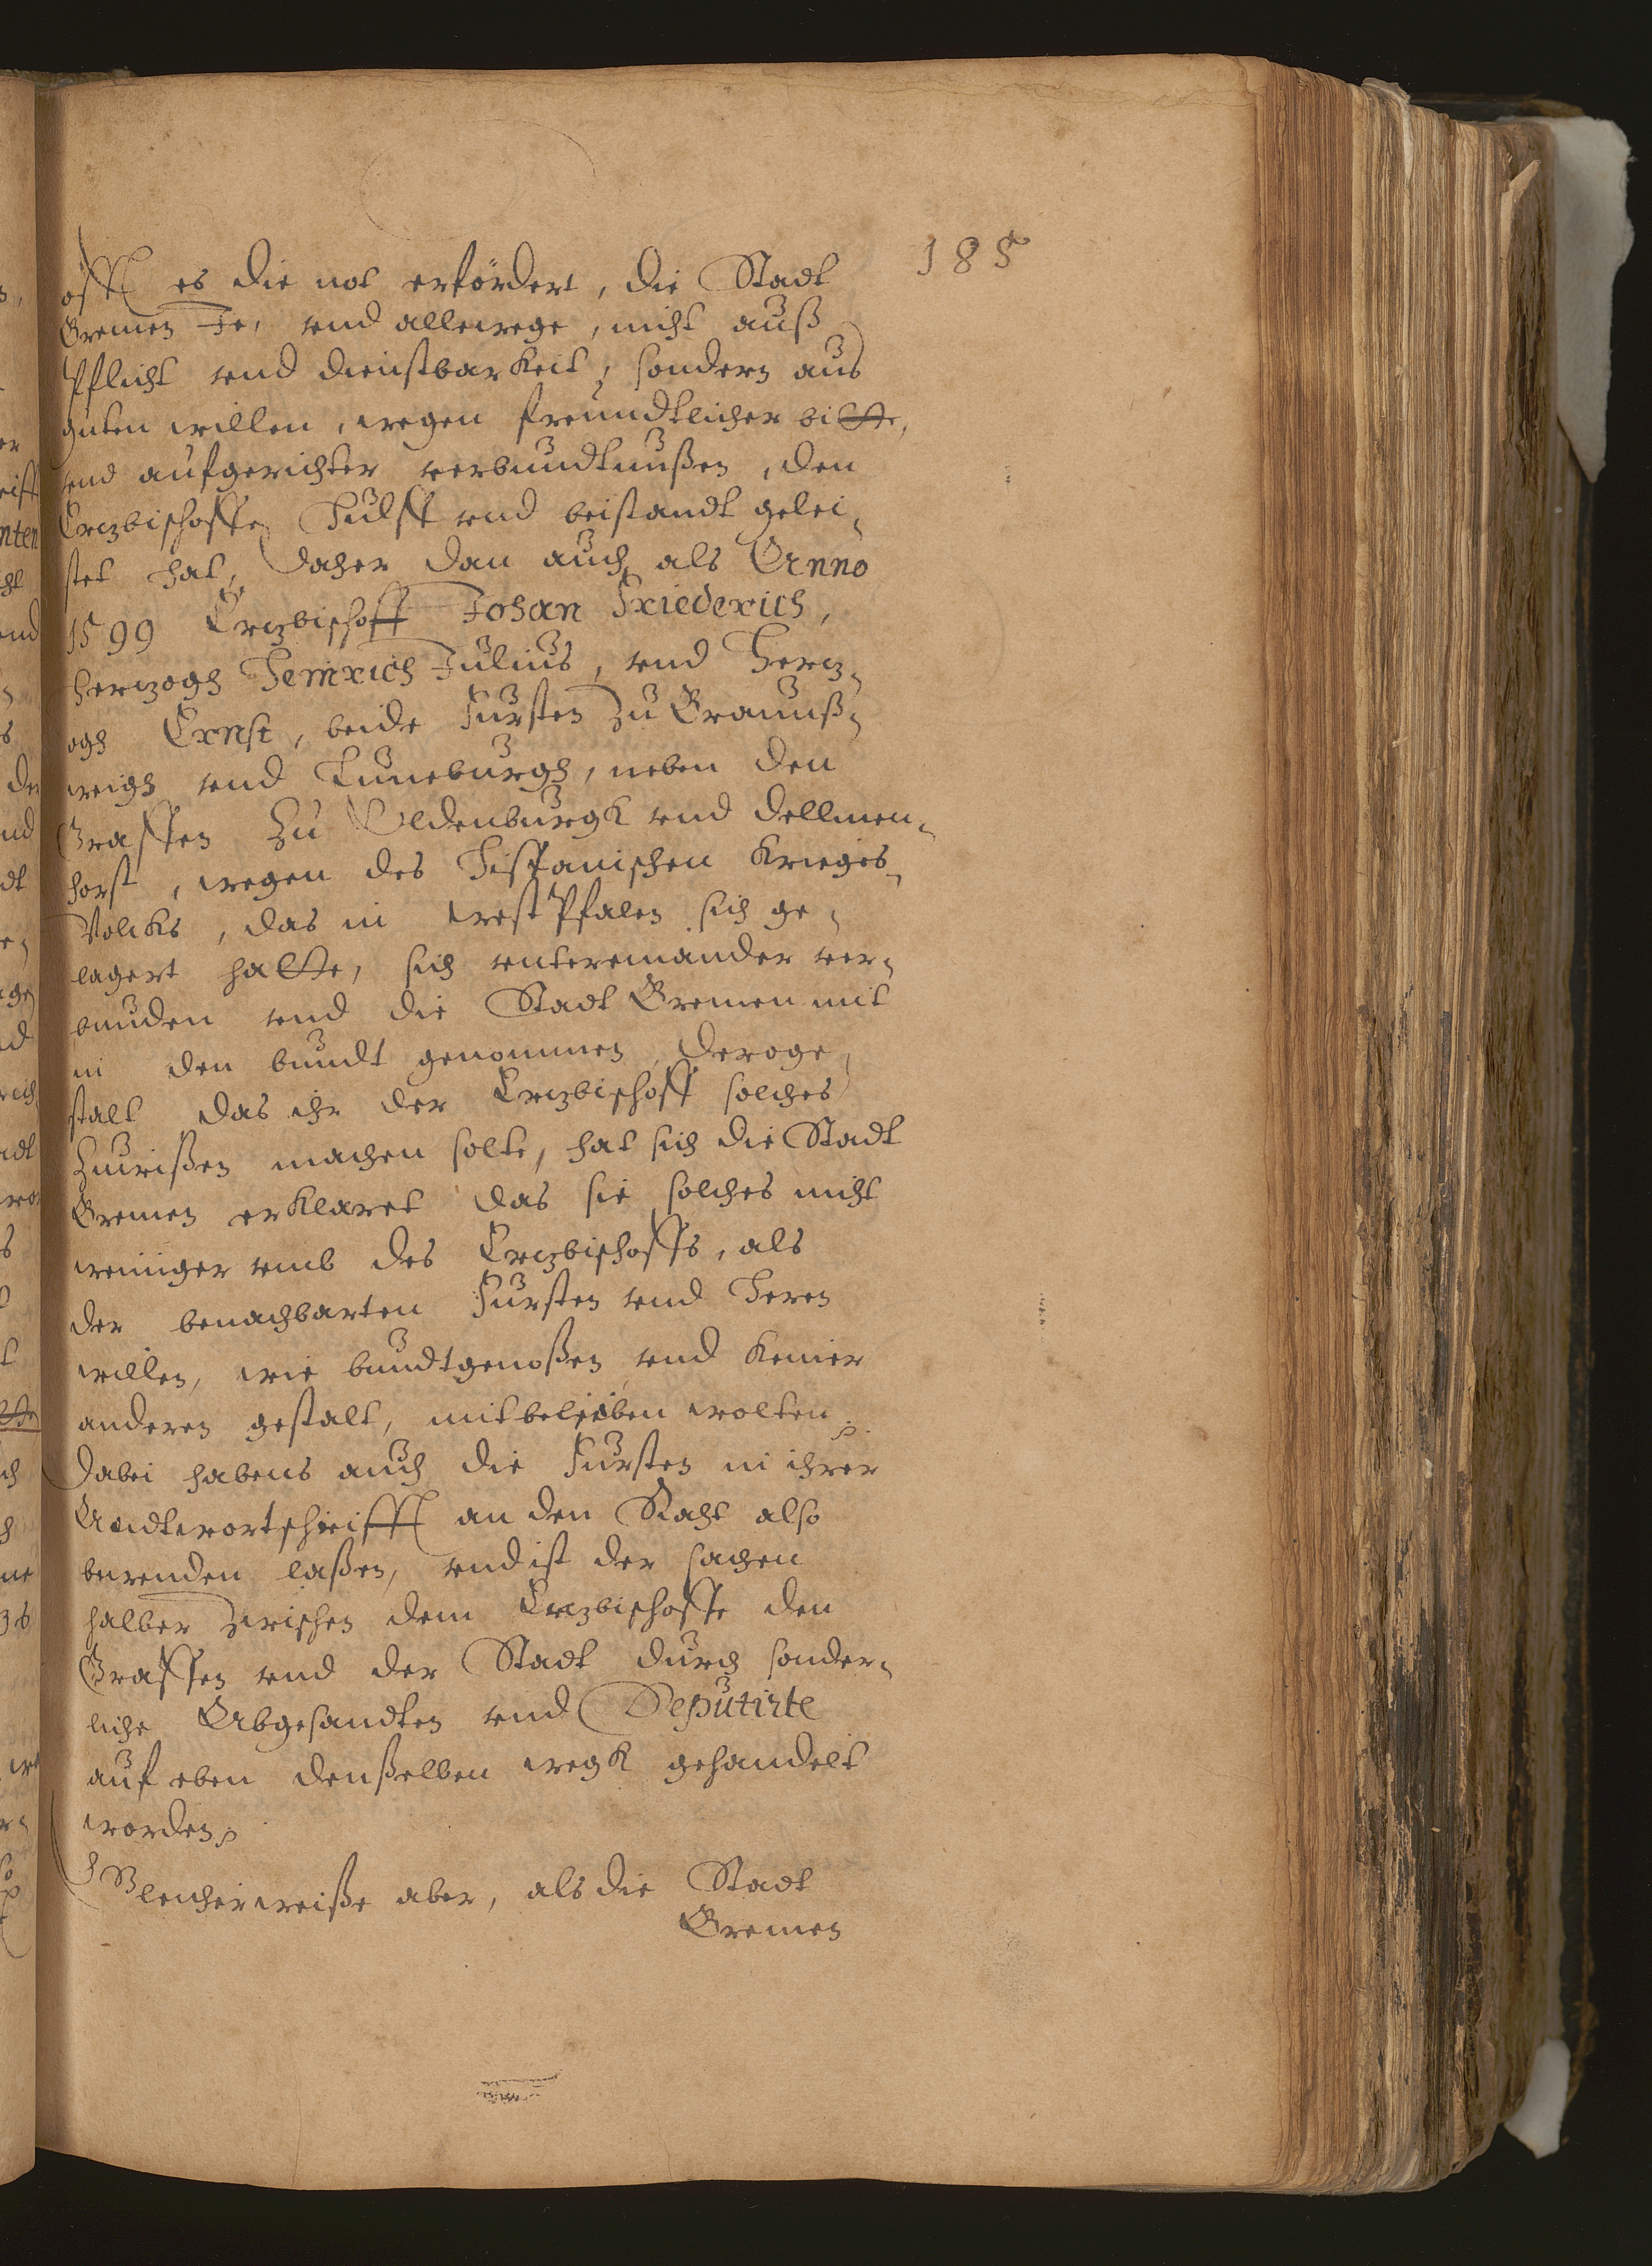 185
offt es die not erfördert, die Stadt
Bremen Je, vnd allewege, nicht auß
Pflicht vnd dienstbarkeit, sondern aus
guten willen, wegen freundtlicher bitte,
vnd aufgerichter verbundtnußen, den
Ertzbischoffen Hulff vnd beistandt gelei-
stet hat, Daher dan auch als Anno
1599 Ertzbischoff Johan Friederich,
Hertzogh Heinrich Julius, vnd Hertz-
ogh Ernst, beide Fursten zu Braunß-
weigh vnd Luneburgh, neben den
Graffen zu Oldenburgk vnd Dellmen-
horst, wegen des Hispanischen Krieges-
Volcks, das in WestPfalen sich ge-
lagert hatte, sich vntereinander ver-
bunden vnd die Stadt Bremen mit
in den bundt genommen, deroge-
stalt das ihr der Ertzbischoff solches
zuwißen machen solte, hat sich die Stadt
Bremen erklaret das sie solches nicht
weiniger vmb des Ertzbischoffs, als
der benachbarten Fursten vnd Heren
willen, wie bundtgenoßen vnd keiner
anderen gestalt, mitbelieben wolten.
Dabei habens auch die Fursten in ihrer
Andtwortschrifft an den Raht also
bewenden laßen, vnd ist der sachen
halber zwischen dem Ertzbischoffe den
Graffen vnd der Stadt durch sonder-
liche Abgesandten vnd Deputirte
auf eben denßelben wegk gehandelt
worden.
Gleicherweiße aber, als die Stadt
Bremen